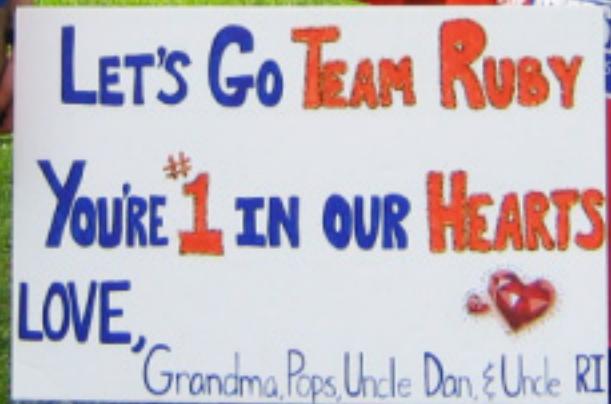 LET'S GO TEAM RUBY
YOU'RE #1 IN OUR HEARTS
LOVE,
Grandma, Pops, Uncle Dan, & Uncle RI